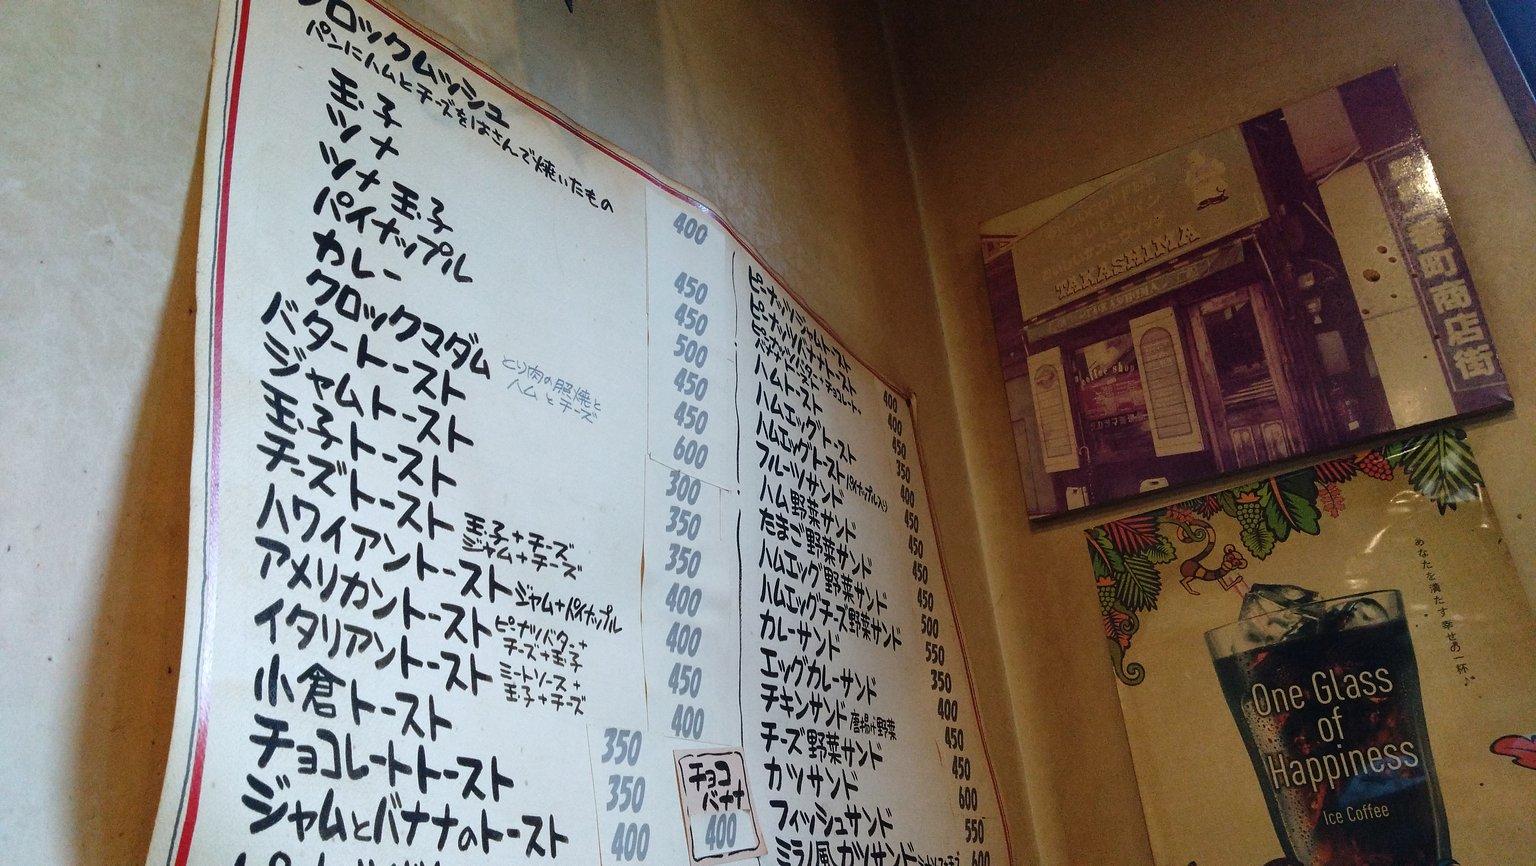 クロックムッシュ
パンにハムとチーズをはさんで焼いたもの 400
玉子 450
ツナ 450
ツナ玉子 500
パイナップル 450
カレー 450
クロックマダム とり肉の照焼と ハムとチーズ 600
バタートースト 300
ジャムトースト 350
玉子トースト 350
チーズトースト 400
玉子+チーズ
ジャム+チーズ
ハワイアントースト ジャム+パイナップル 400
アメリカントースト ピーナツバター+ チーズ+玉子 450
イタリアントースト ミートソース+ 玉子+チーズ 400
小倉トースト 350
チョコレートトースト 350
ジャムとバナナのトースト 400
チョコ
バナナ
400
ピーナッツジャムトースト 400
ピーナッツバナナトースト 400
ピーナッツバター+チョコレート 450
ハムトースト 350
ハムエッグトースト 400
ハムエッグトースト パイナップル入り 450
フルーツサンド 450
ハム野菜サンド 450
たまご野菜サンド 450
ハムエッグ野菜サンド 500
ハムエッグチーズ野菜サンド 550
カレーサンド 350
エッグカレーサンド 400
チキンサンド 唐揚げ野菜 450
チーズ野菜サンド 450
カツサンド 600
フィッシュサンド 550
ミラノ風カツサンド 600
TAKASHIMA
coffee shop
番町商店街
あなたを満たす幸せの一杯♪
One Glass
of
Happiness
Ice Coffee